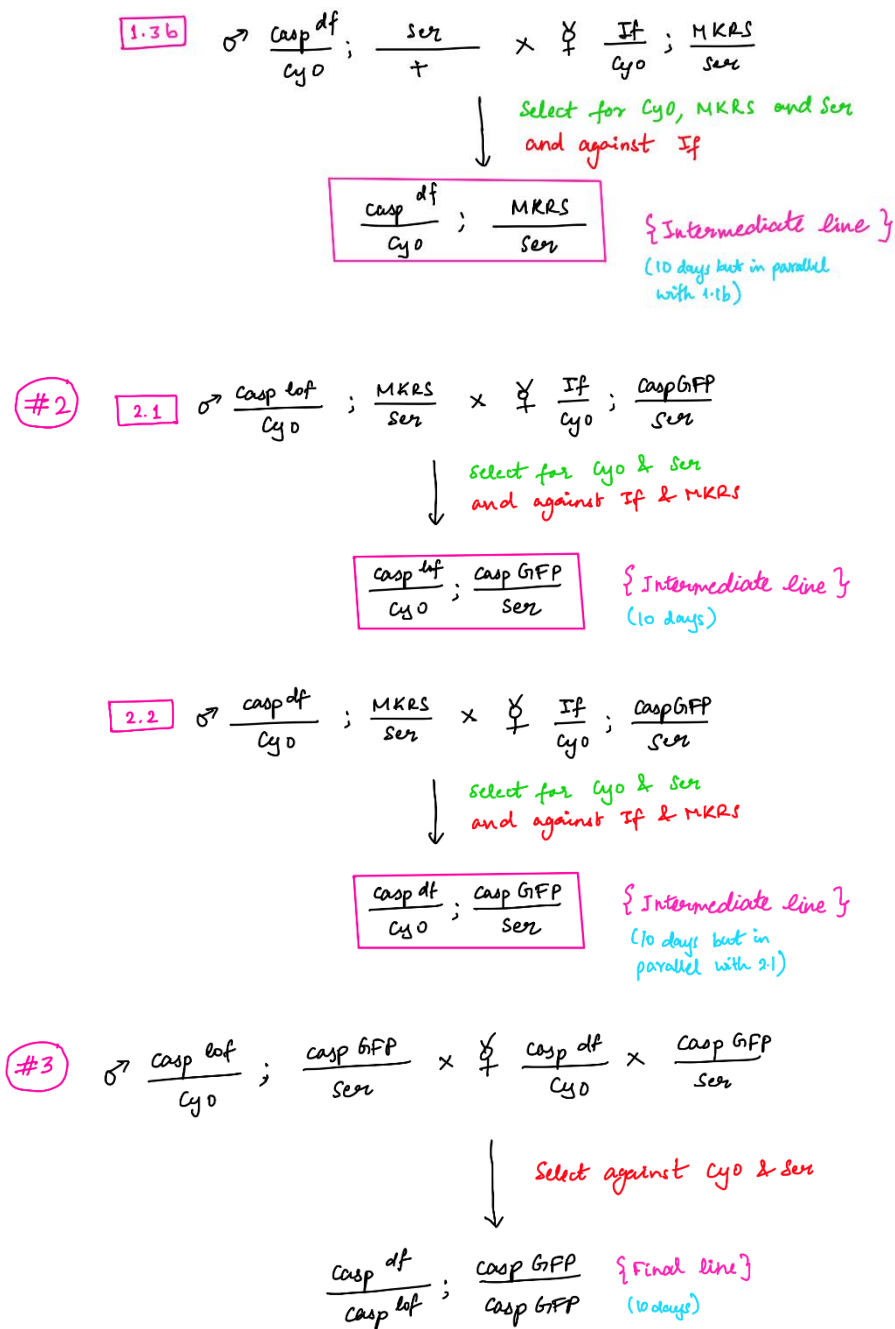 1.3b ♂ casp df/CyO ; Ser/+ × ☿ If/CyO ; MKRS/Ser
Select for CyO, MKRS and Ser
and against If
casp df/CyO ; MKRS/Ser {Intermediate line}
(10 days but in parallel
with 1.1b)
#2 2.1 ♂ casp lof/CyO ; MKRS/Ser × ☿ If/CyO ; casp GFP/Ser
Select for CyO & Ser
and against If & MKRS
casp lof/CyO ; casp GFP/Ser {Intermediate line}
(10 days)
2.2 ♂ casp df/CyO ; MKRS/Ser × ☿ If/CyO ; casp GFP/Ser
Select for CyO & Ser
and against If & MKRS
casp df/CyO ; casp GFP/Ser {Intermediate line}
(10 days but in
parallel with 2.1)
#3 ♂ casp lof/CyO ; casp GFP/Ser × ☿ casp df/CyO × casp GFP/Ser
Select against CyO & Ser
casp df/casp lof ; casp GFP/casp GFP {Final line}
(10 days)